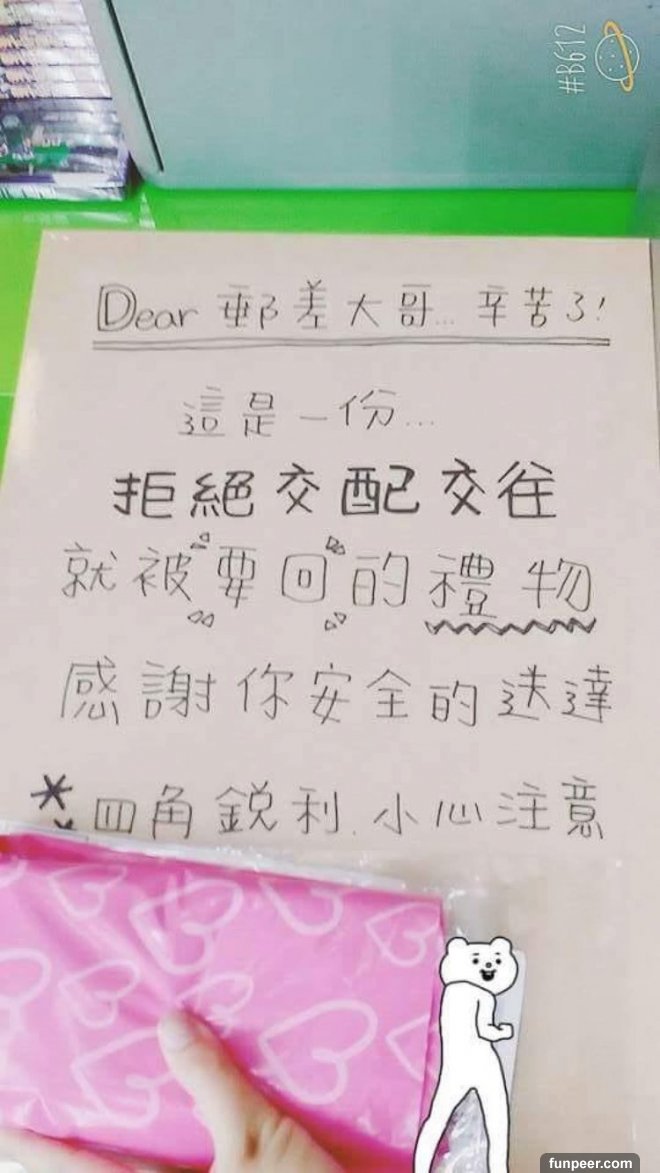 #B612
Dear 郵差大哥... 辛苦了!
這是一份...
拒絕交配交往
就被要回的禮物
感謝你安全的送達
*四角銳利.小心注意
funpeer.com